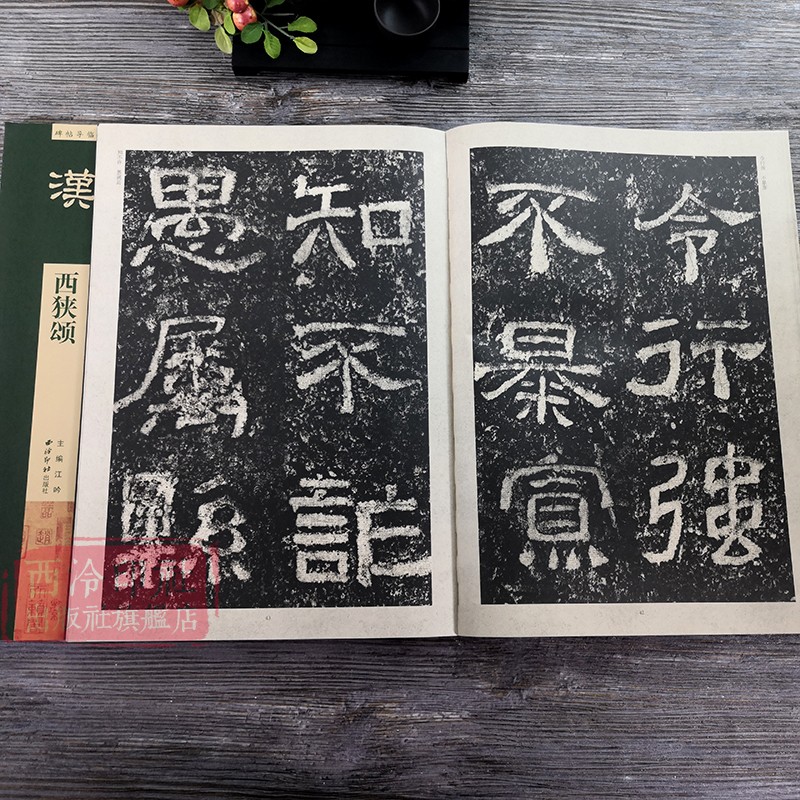 令行強
不暴寡
知不詐
愚屬縣
碑帖导临
漢
西狭颂
主编 江吟
西泠印社出版社
西泠印社
出版社旗艦店
43
42